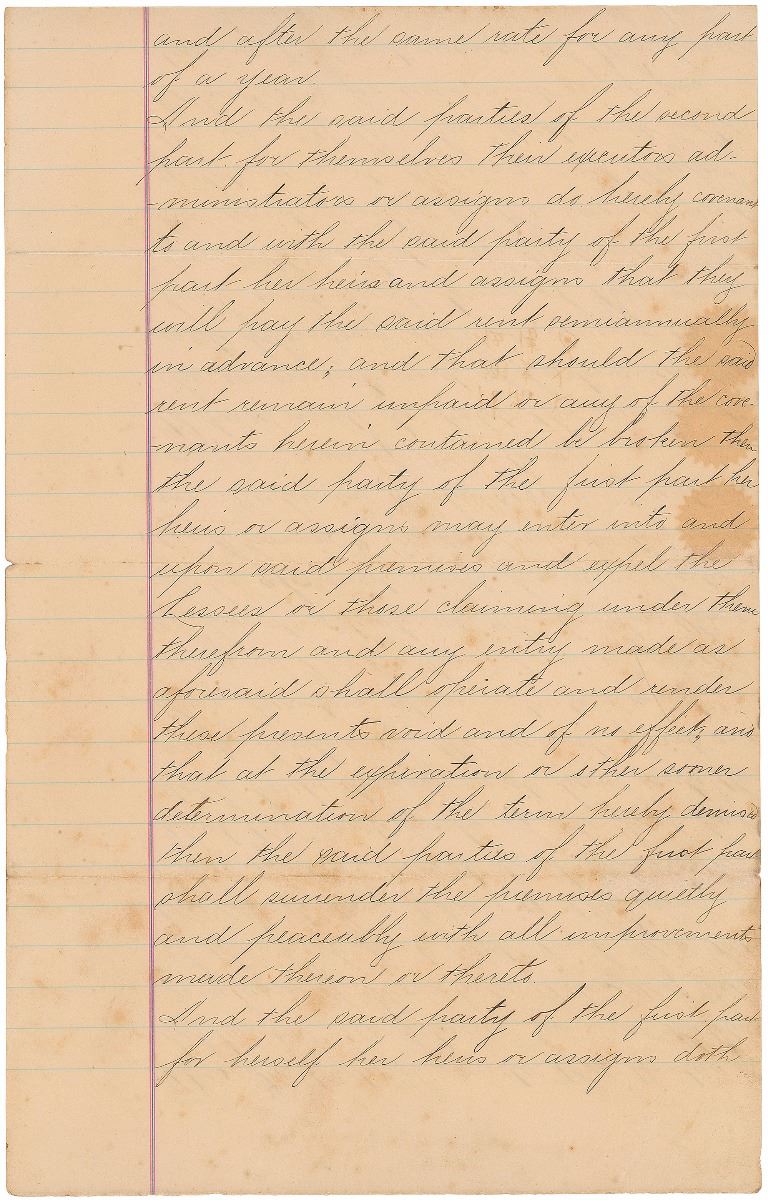 and after the same rate for any part
of a year.
And the said parties of the second
part for themselves their executors ad-
-ministrators or assigns do hereby covenant
to and with the said party of the first
part her heirs and assigns that they
will pay the said rent semiannually
in advance; and that should the said
rent remain unpaid or any of the cove-
-nants herein contained be broken then
the said party of the first part her
heirs or assigns may enter into and
upon said premises and expel the
Lessees or those claiming under them
therefrom and any entry made as
aforesaid shall operate and render
these presents void and of no effect; and
that at the expiration or other sooner
determination of the term hereby demised
then the said parties of the first part
shall surrender the premises quietly
and peaceably with all improvements
made thereon or thereto.
And the said party of the first part
for herself her heirs or assigns doth